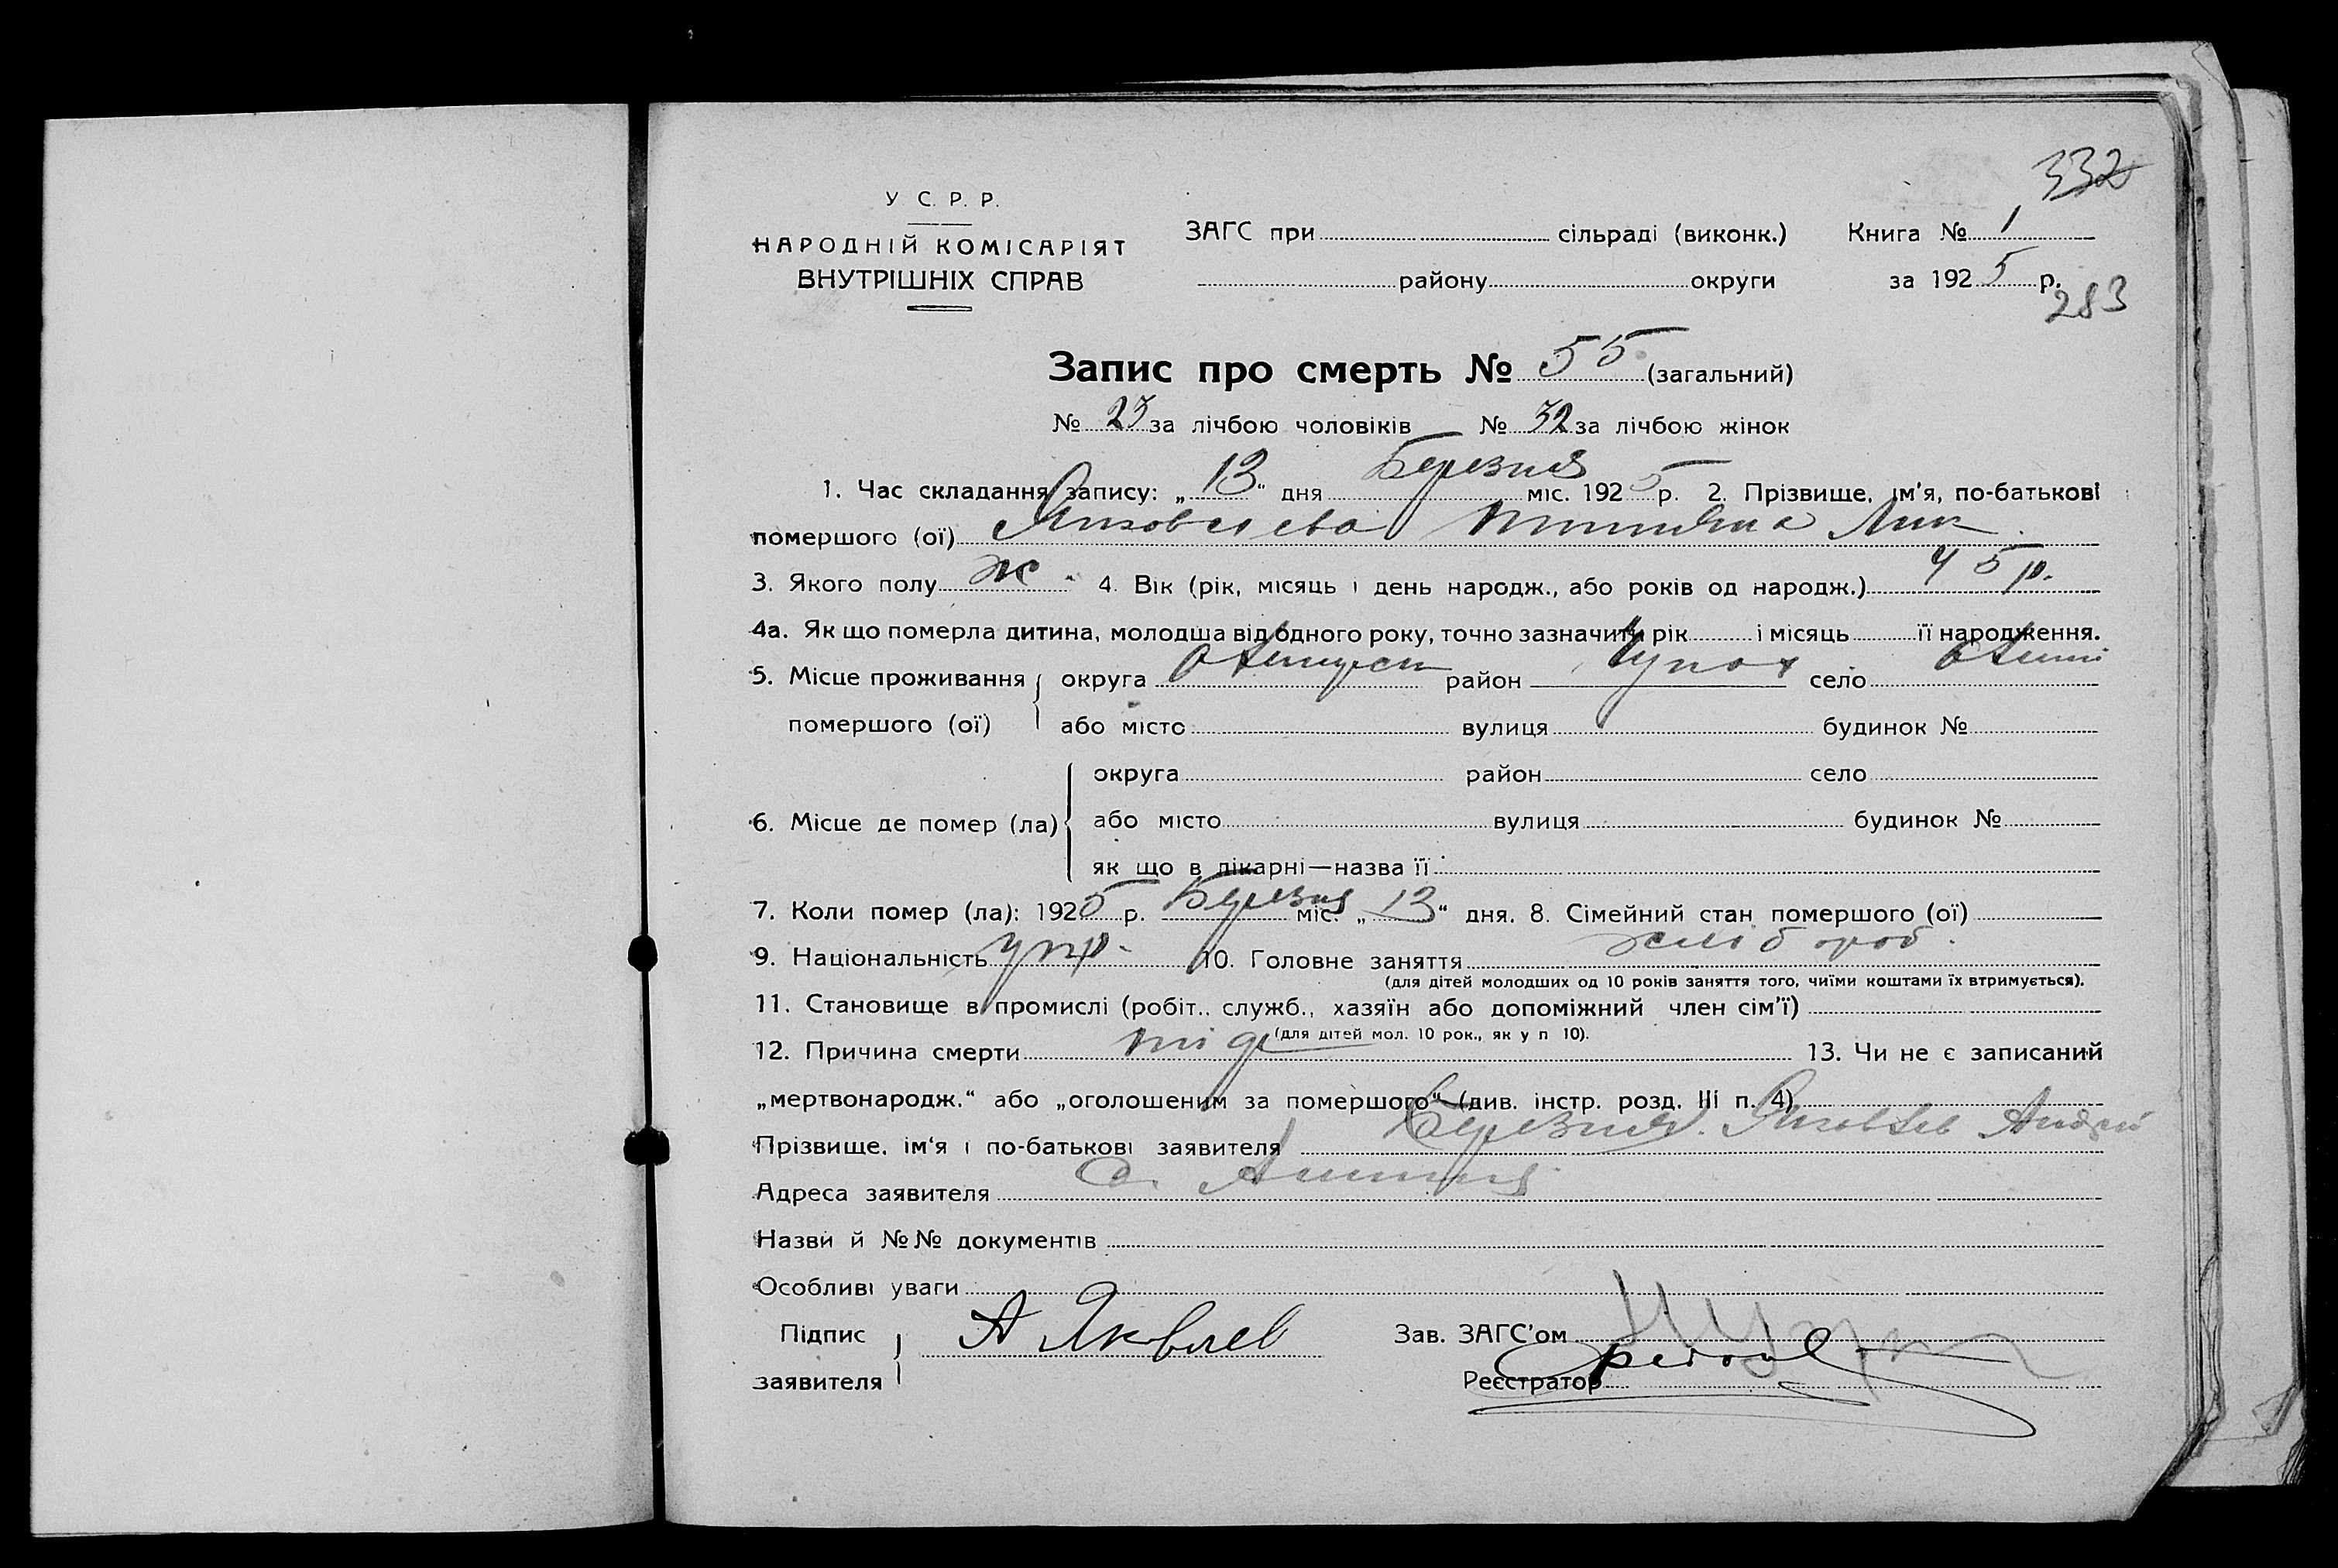 332
У С. Р. Р.
НАРОДНІЙ КОМІСАРІЯТ
ВНУТРІШНІХ СПРАВ
ЗАГС при сільраді (виконк.) Книга № 1
району округи за 1925 р.
283
Запис про смерть № 55 (загальний)
№ 23 за лічбою чоловіків № 32 за лічбою жінок
1. Час складання запису: „13“ дня Березня міс. 1925 р. 2. Прізвище, ім'я, по-батькові
помершого (ої) Яковлева
3. Якого полу ж 4. Вік (рік, місяць і день народж., або років од народж.) 45 р.
4а. Як що померла дитина, молодша від одного року, точно зазначить рік і місяць її народження.
5. Місце проживання помершого (ої) округа район село
або місто вулиця будинок №
6. Місце де помер (ла) округа район село
або місто вулиця будинок №
як що в лікарні—назва її
7. Коли помер (ла): 1925 р. Березня міс. „13“ дня. 8. Сімейний стан помершого (ої)
9. Національність укр. 10. Головне заняття хлібороб.
(для дітей молодших од 10 років заняття того, чиїми коштами їх втримується).
11. Становище в промислі (робіт.. служб., хазяїн або допоміжний член сім'ї)
(для дітей мол. 10 рок., як у п 10).
12. Причина смерти 13. Чи не є записаний
„мертвонародж.“ або „оголошеним за помершого“ (див. інстр. розд. III п. 4)
Прізвище, ім'я і по-батькові заявителя Яковлев Андрей
Адреса заявителя с.
Назви й №№ документів
Особливі уваги
Підпис заявителя А Яковлев Зав. ЗАГС'ом
Реєстратор